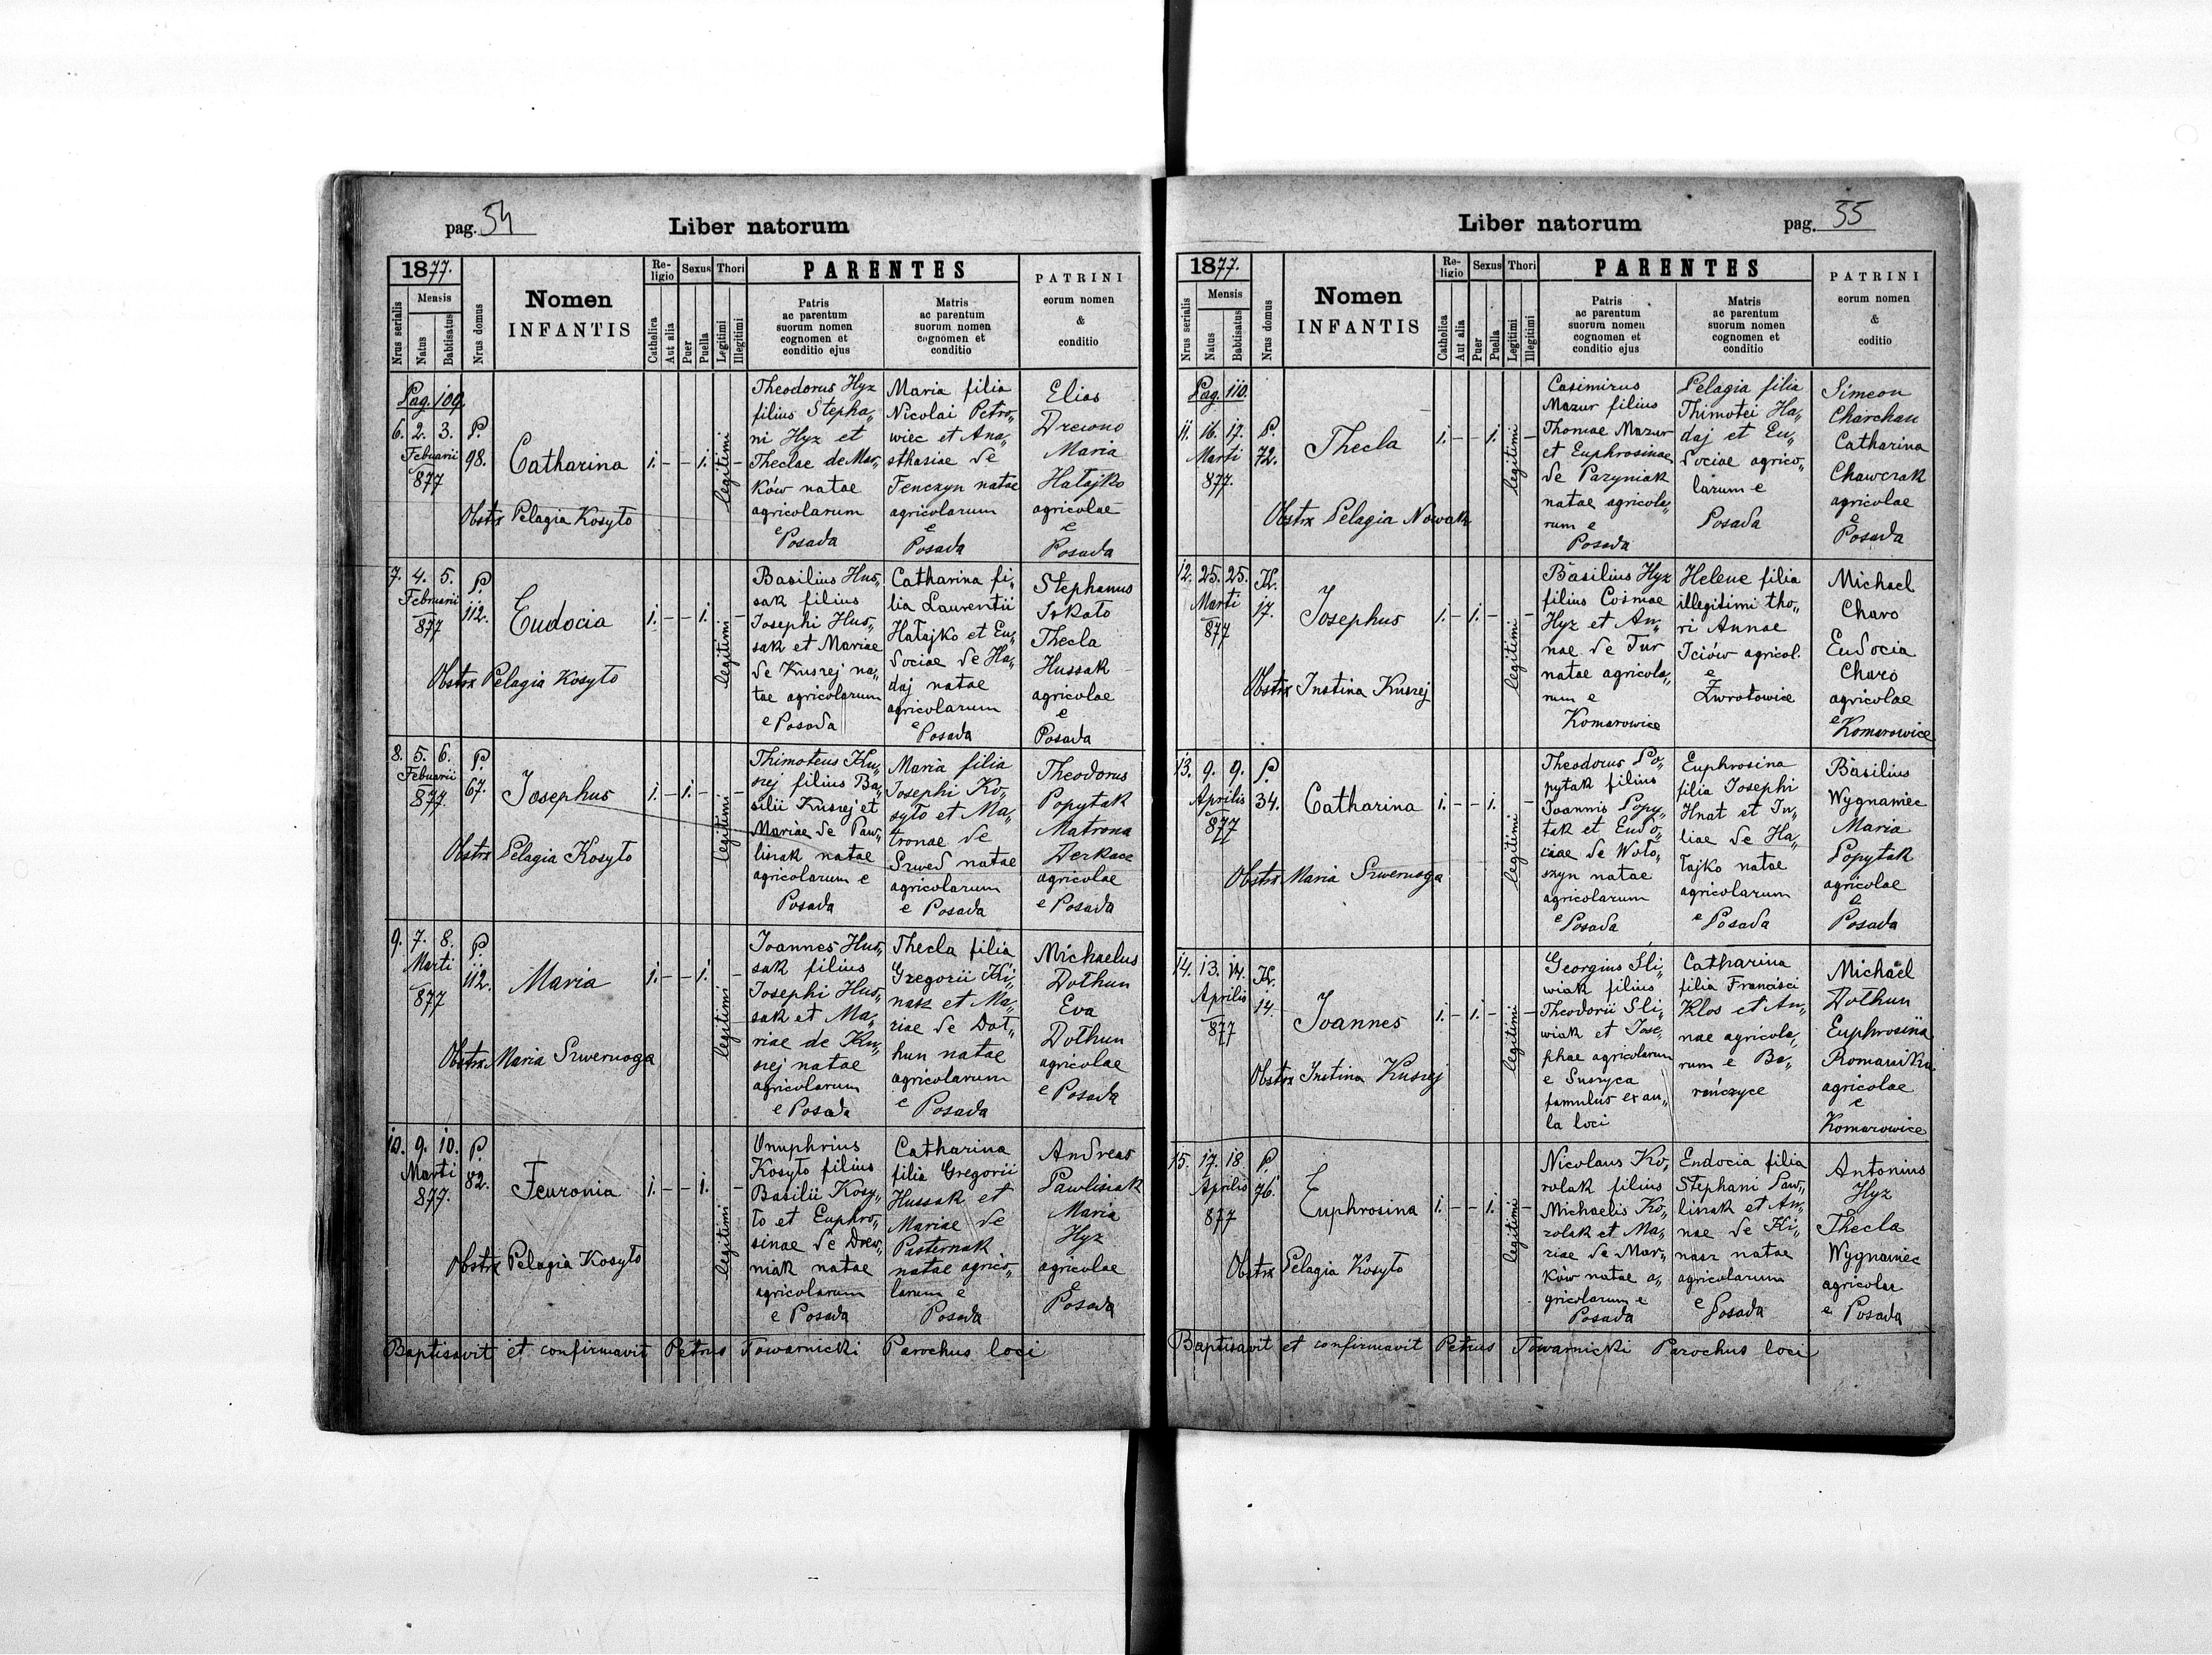 pag. 54
Liber natorum
1877.
Nrus serialis
Mensis
Natus
Babtisatus
Nrus domus
Nomen
INFANTIS
Re-
ligio
Catholica
Aut alia
Sexus
Puer
Puella
Thori
Legitimi
Illegitimi
PARENTES
Patris
ac parentum
suorum nomen
cognomen et
conditio ejus
Matris
ac parentum
suorum nomen
cognomen et
conditio
PATRINI
eorum nomen
&
conditio
Pag. 109.
6. 2. 3.
Februarii
877
P.
98.
Catharina
1. - - 1. -
legitimi
Obstrx Pelagia Kosyło
Theodorus Hyz
filius Stepha„
ni Hyz et
Theclae de Mar„
ków natae
agricolarum
e
Posada
Maria filia
Nicolai Petro„
wiec et Ana„
sthasiae de
Fenczyn natae
agricolarum
e
Posada
Elias
Drewno
Maria
Hałajko
agricolae
e
Posada
7. 4. 5.
Februarii
877
P.
112.
Eudocia
1. - - 1. -
legitimi
Obstrx Pelagia Kosyło
Basilius Hus„
sak filius
Josephi Hus„
sak et Mariae
de Kusrej na„
tae agricolarum
e Posada
Catharina fi„
lia Laurentii
Hałajko et Eu„
dociae de Ha„
daj natae
agricolarum
e Posada
Stephanus
Thecla
Hussak
agricolae
e
Posada
8. 5. 6.
Februarii
877
P.
67.
Josephus
1. - 1. - -
legitimi
Obstrx Pelagia Kosyło
Thimoteus Ku„
srej filius Ba„
silii Kusrej et
Mariae de Paw„
lisiak natae
agricolarum e
Posada
Maria filia
Josephi Ko„
syło et Ma„
tronae de
Szwed natae
agricolarum
e Posada
Theodorus
Popytak
Matrona
Derkacz
agricolae
e Posada
9. 7. 8.
Marti
877
P.
112.
Maria
1. - - 1. -
legitimi
Obstrx Maria Szweruoga
Joannes Hus„
sak filius
Josephi Hus„
sak et Ma„
riae de Ku„
srej natae
agricolarum
e Posada
Thecla filia
Gregorii Ki„
nasz et Ma„
riae de Doł„
hun natae
agricolarum
e Posada
Michaelus
Dołhun
Eva
Dołhun
agricolae
e Posada
10. 9. 10.
Marti
877.
P.
82.
Feuronia
1. - - 1. -
legitimi
Obstrx Pelagia Kosyło
Onuphrius
Kosyło filius
Basilii Kosy„
ło et Euphro„
sinae de Drew„
niak natae
agricolarum
e Posada
Catharina
filia Gregorii
Hussak et
Mariae de
Pasternak
natae agrico„
larum e
Posada
Andreas
Pawlisiak
Maria
Hyz
agricolae
e
Posada
Baptisavit et confirmavit Petrus Towarnicki Parochus loci
Liber natorum
pag. 55
1877.
Nrus serialis
Mensis
Natus
Babtisatus
Nrus domus
Nomen
INFANTIS
Re-
ligio
Catholica
Aut alia
Sexus
Puer
Puella
Thori
Legitimi
Illegitimi
PARENTES
Patris
ac parentum
suorum nomen
cognomen et
conditio ejus
Matris
ac parentum
suorum nomen
cognomen et
conditio
PATRINI
eorum nomen
&
coditio
Pag. 110.
11. 16. 17.
Marti
877.
P.
72.
Thecla
1. - - 1. -
legitimi
Obstrx Pelagia Nowak
Casimirus
Mazur filius
Thomae Mazur
et Euphrosinae
de Pazyniak
natae agricola„
rum e
Posada
Pelagia filia
Thimotei Ha„
daj et Eu„
dociae agrico„
larum e
Posada
Simeon
Charchan
Catharina
Chawczak
agricolae
e
Posada
12. 25. 25.
Marti
877
K.
17.
Josephus
1. - 1. - -
legitimi
Obstrx Justina Kusrej
Basilius Hyz
filius Cosmae
Hyz et An„
nae de Tur
natae agricola„
rum e
Komarowice
Helene filia
illegitimi tho„
ri Annae
Iciów agricol.
e
Zwrotowice
Michael
Charo
Eudocia
Charo
agricolae
e Komarowice
13. 9. 9.
Aprilis
877
P.
34.
Catharina
1. - - 1. -
legitimi
Obstrx Maria Szweruoga
Theodorus Po„
pytak filius
Joannis Popy„
tak et Eudo„
ciae de Woło„
szyn natae
agricolarum
e Posada
Euphrosina
filia Josephi
Hnat et Ju„
liae de Ha„
łajko natae
agricolarum
e Posada
Basilius
Wygnaniec
Maria
Popytak
agricolae
e
Posada
14. 13. 14.
Aprilis
877
K.
14.
Joannes
1. - 1. - -
legitimi
Obstrx Justina Kusrej
Georgius Sli„
wiak filius
Theodorii Sli„
wiak et Jose„
phae agricolarum
e Susryca
famulus ex au„
la loci
Catharina
filia Francisci
Klos et An„
nae agricola„
rum e Bo„
rończyce
Michael
Dołhun
Euphrosina
Romaniszka
agricolae
e
Komarowice
15. 17. 18.
Aprilis
877
P.
76.
Euphrosina
1. - - 1. -
legitimi
Obstrx Pelagia Kosyło
Nicolaus Ko„
rolak filius
Michaelis Ko„
rolak et Ma„
riae de Mar„
ków natae a„
gricolarum e
Posada
Eudocia filia
Stephani Paw„
lisiak et An„
nae de Ki„
nasz natae
agricolarum
e Posada
Antonius
Hyz
Thecla
Wygnaniec
agricolae
e Posada
Baptisavit et confirmavit Petrus Towarnicki Parochus loci